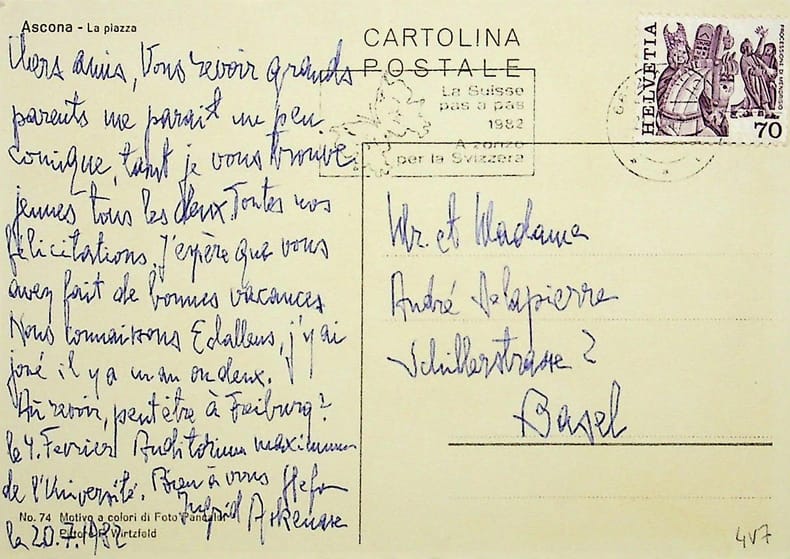 Ascona - La piazza
CARTOLINA
POSTALE
La Suisse
pas a pas
1982
A zonzo
per la Svizzera
HELVETIA
PROCESSIONE DI MENDRISIO
70
Chers amis, Vous revoir grands
parents me parait un peu
comique, tant je vous trouve
jeunes tous les deux. Toutes nos
félicitations. J'espère que vous
avez fait de bonnes vacances
Nous connaissons Echallens, j'y ai
joué il y a un an ou deux.
Au revoir, peut être à Freiburg?
le 4. Fevrier Auditorium maximum
de l'Université. Bien à vous Stefan
Ingrid Askenase
le 20.7.1982
Mr. et Madame
André Delapierre
Schillerstrasse 2
Basel
No. 74 Motivo a colori di Foto Pancaldi
Pittore P. Wirtzfeld
4V7